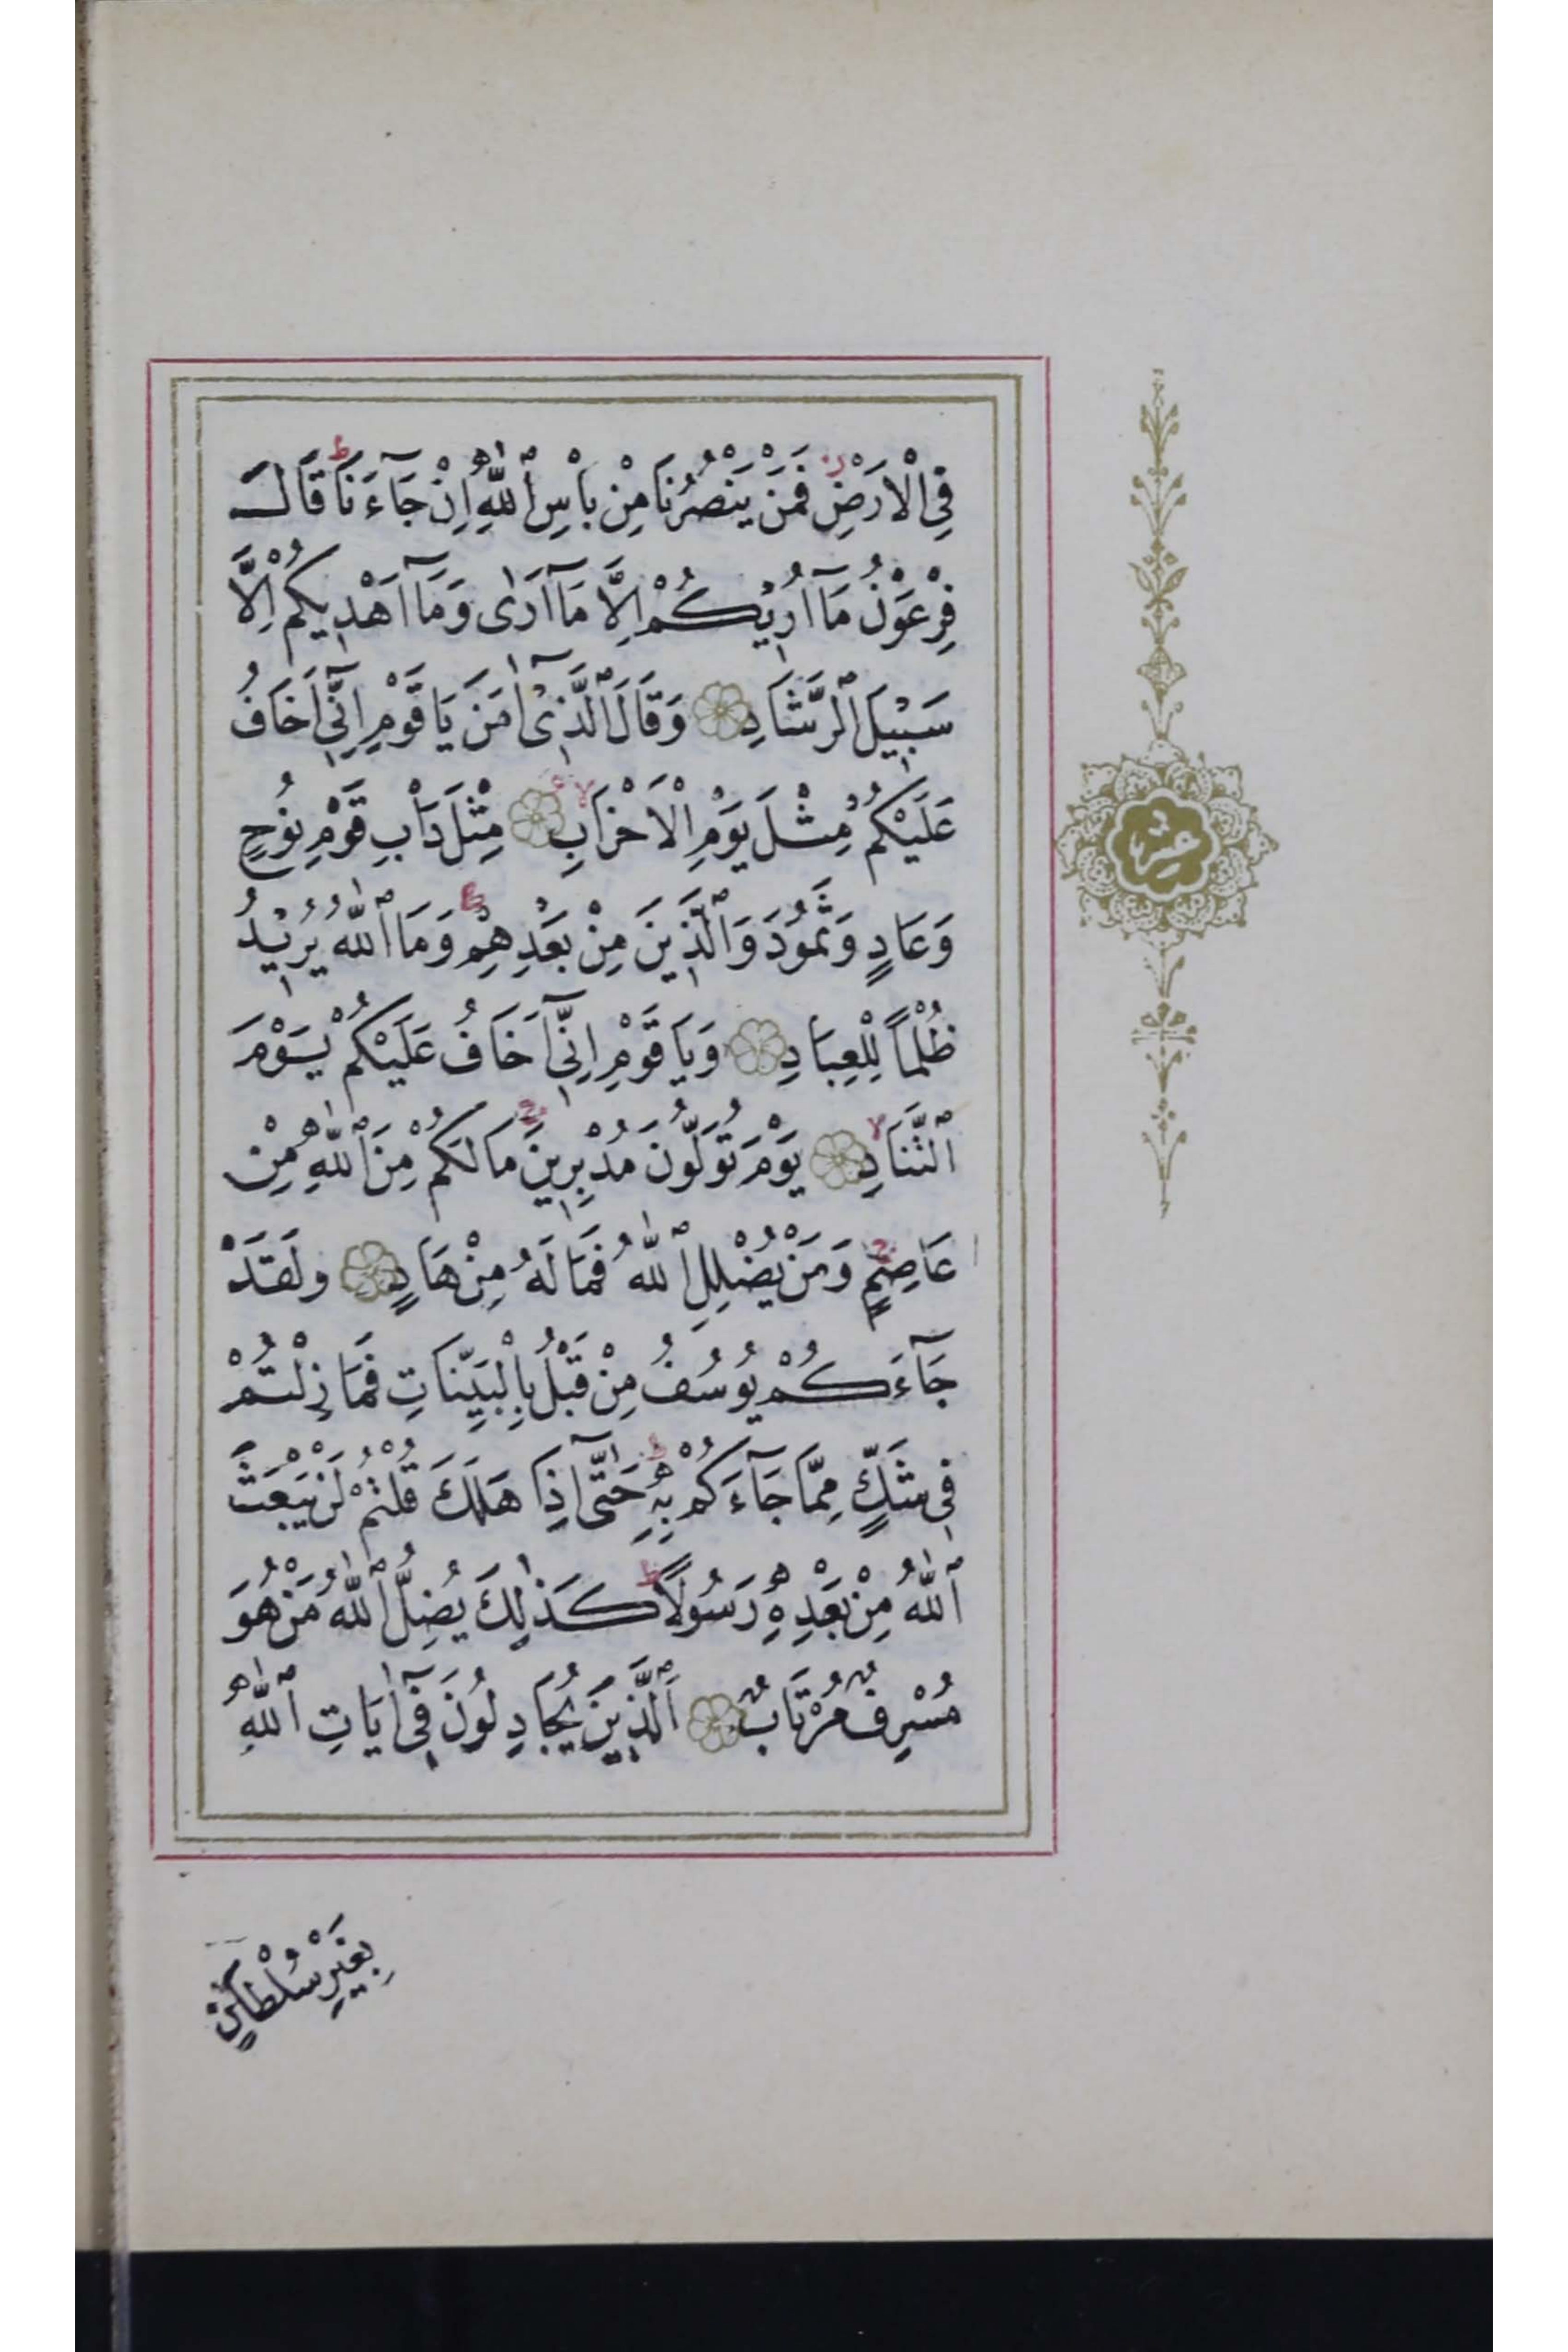 فِي الْاَرْضِ فَمَنْ يَنْصُرُنَا مِنْ بَأْسِ ٱللّٰهِ اِنْ جَآءَنَا قَالَ
فِرْعَوْنُ مَآ اُرِيْكُمْ اِلَّا مَآ اَرٰى وَمَآ اَهْدِيكُمْ اِلَّا
سَبِيْلَ ٱلرَّشَادِ وَقَالَ ٱلَّذِىْٓ اٰمَنَ يَا قَوْمِ اِنِّٓي اَخَافُ
عَلَيْكُمْ مِثْلَ يَوْمِ الْاَحْزَابِ مِثْلَ دَأْبِ قَوْمِ نُوحٍ
وَعَادٍ وَثَمُودَ وَٱلَّذِينَ مِنْ بَعْدِهِمْ وَمَا ٱللّٰهُ يُرِيْدُ
ظُلْمًا لِلْعِبَادِ وَيَا قَوْمِ اِنِّٓي اَخَافُ عَلَيْكُمْ يَوْمَ
ٱلتَّنَادِ يَوْمَ تُوَلُّونَ مُدْبِرِينَ مَا لَكُمْ مِنَ ٱللّٰهِ مِنْ
عَاصِمٍ وَمَنْ يُضْلِلِ ٱللّٰهُ فَمَا لَهُ مِنْ هَادٍ وَلَقَدْ
جَآءَكُمْ يُوسُفُ مِنْ قَبْلُ بِالْبَيِّنَاتِ فَمَا زِلْتُمْ
فِي شَكٍّ مِمَّا جَآءَكُمْ بِهِ حَتّٰٓى اِذَا هَلَكَ قُلْتُمْ لَنْ يَبْعَثَ
ٱللّٰهُ مِنْ بَعْدِهِ رَسُولًا كَذٰلِكَ يُضِلُّ ٱللّٰهُ مَنْ هُوَ
مُسْرِفٌ مُرْتَابٌ اَلَّذِينَ يُجَادِلُونَ فِٓي اٰيَاتِ ٱللّٰهِ
عشر
بِغَيْرِ سُلْطَانٍ